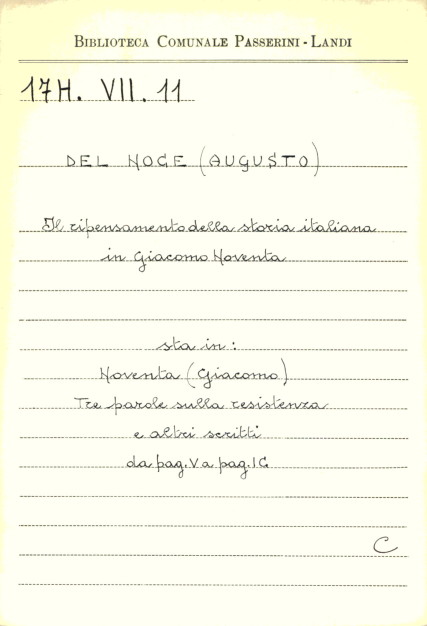 BIBLIOTECA COMUNALE PASSERINI - LANDI
17H. VII. 11
DEL NOCE (AUGUSTO)
Il ripensamento della storia italiana
in Giacomo Noventa
sta in:
Noventa (Giacomo)
Tre parole sulla resistenza
e altri scritti
da pag. V a pag. IC
C